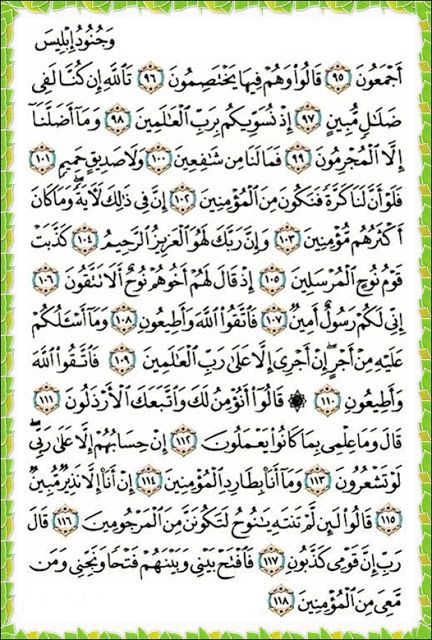 وَجُنُودُ إِبْلِيسَ
أَجْمَعُونَ ٩٥ قَالُوا۟ وَهُمْ فِيهَا يَخْتَصِمُونَ ٩٦ تَٱللَّهِ إِن كُنَّا لَفِى
ضَلَـٰلٍ مُّبِينٍ ٩٧ إِذْ نُسَوِّيكُم بِرَبِّ ٱلْعَـٰلَمِينَ ٩٨ وَمَآ أَضَلَّنَآ
إِلَّا ٱلْمُجْرِمُونَ ٩٩ فَمَا لَنَا مِن شَـٰفِعِينَ ١٠٠ وَلَا صَدِيقٍ حَمِيمٍ ١٠١
فَلَوْ أَنَّ لَنَا كَرَّةً فَنَكُونَ مِنَ ٱلْمُؤْمِنِينَ ١٠٢ إِنَّ فِى ذَٰلِكَ لَـَٔايَةً ۖ وَمَا كَانَ
أَكْثَرُهُم مُّؤْمِنِينَ ١٠٣ وَإِنَّ رَبَّكَ لَهُوَ ٱلْعَزِيزُ ٱلرَّحِيمُ ١٠٤ كَذَّبَتْ
قَوْمُ نُوحٍ ٱلْمُرْسَلِينَ ١٠٥ إِذْ قَالَ لَهُمْ أَخُوهُمْ نُوحٌ أَلَا تَتَّقُونَ ١٠٦
إِنِّى لَكُمْ رَسُولٌ أَمِينٌ ١٠٧ فَٱتَّقُوا۟ ٱللَّهَ وَأَطِيعُونِ ١٠٨ وَمَآ أَسْـَٔلُكُمْ
عَلَيْهِ مِنْ أَجْرٍ ۖ إِنْ أَجْرِىَ إِلَّا عَلَىٰ رَبِّ ٱلْعَـٰلَمِينَ ١٠٩ فَٱتَّقُوا۟ ٱللَّهَ
وَأَطِيعُونِ ١١٠ ۞ قَالُوٓا۟ أَنُؤْمِنُ لَكَ وَٱتَّبَعَكَ ٱلْأَرْذَلُونَ ١١١
قَالَ وَمَا عِلْمِى بِمَا كَانُوا۟ يَعْمَلُونَ ١١٢ إِنْ حِسَابُهُمْ إِلَّا عَلَىٰ رَبِّى ۖ
لَوْ تَشْعُرُونَ ١١٣ وَمَآ أَنَا۠ بِطَارِدِ ٱلْمُؤْمِنِينَ ١١٤ إِنْ أَنَا۠ إِلَّا نَذِيرٌ مُّبِينٌ
١١٥ قَالُوا۟ لَئِن لَّمْ تَنتَهِ يَـٰنُوحُ لَتَكُونَنَّ مِنَ ٱلْمَرْجُومِينَ ١١٦ قَالَ
رَبِّ إِنَّ قَوْمِى كَذَّبُونِ ١١٧ فَٱفْتَحْ بَيْنِى وَبَيْنَهُمْ فَتْحًا وَنَجِّنِى وَمَن
مَّعِىَ مِنَ ٱلْمُؤْمِنِينَ ١١٨